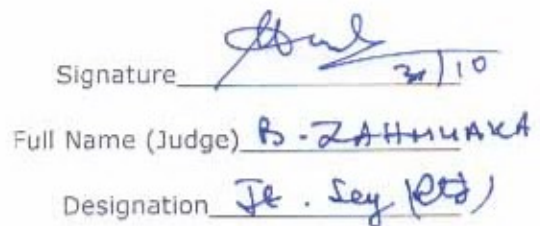 Signature 31/10
Full Name (Judge) B. ZAHMUAKA
Designation Jt. Secy (Rtd)